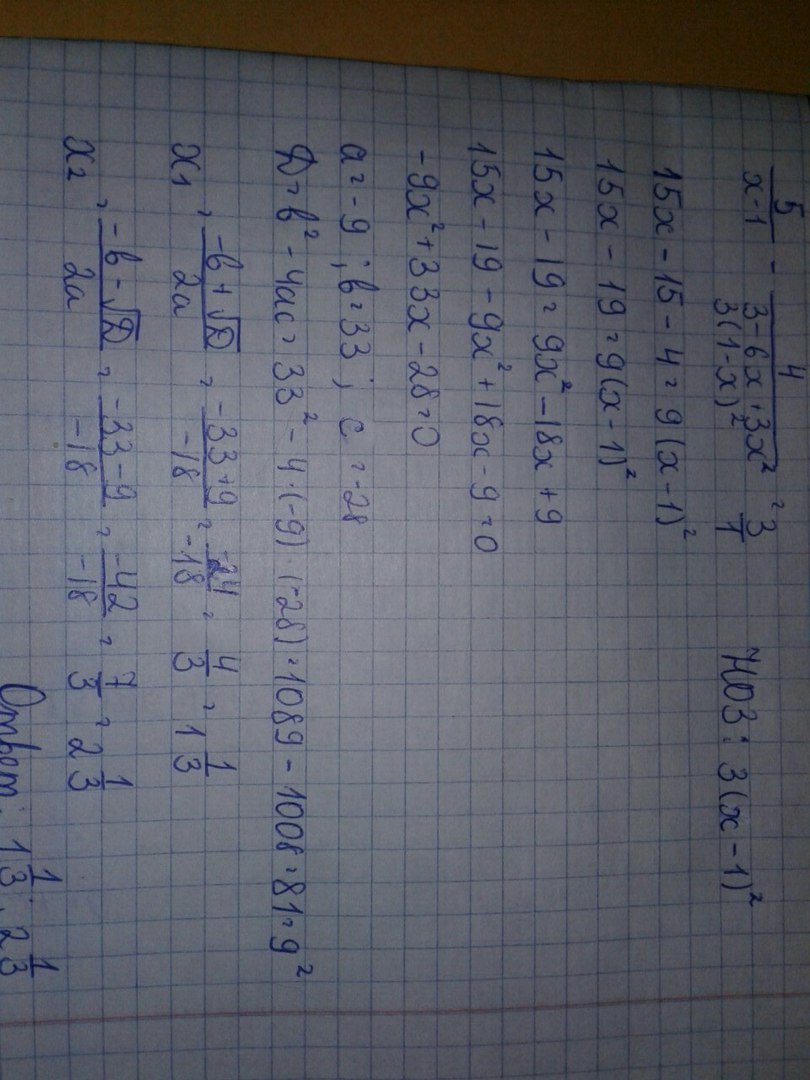 5/(x-1) - 4/(3-6x+3x²) = 3/1 НОЗ: 3(x-1)²
3(1-x)²
15x - 15 - 4 = 9(x-1)²
15x - 19 = 9(x-1)²
15x - 19 = 9x² - 18x + 9
15x - 19 - 9x² + 18x - 9 = 0
-9x² + 33x - 28 = 0
a = -9; b = 33; c = -28
D = b² - 4ac = 33² - 4·(-9)·(-28) = 1089 - 1008 = 81 = 9²
x₁ = (-b+√D)/2a = (-33+9)/-18 = -24/-18 = 4/3 = 1 1/3
x₂ = (-b-√D)/2a = (-33-9)/-18 = -42/-18 = 7/3 = 2 1/3
Ответ: 1 1/3; 2 1/3